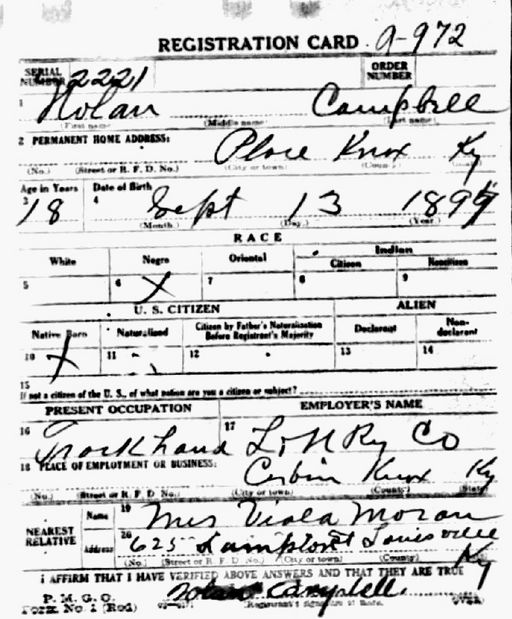 REGISTRATION CARD. 9-972
SERIAL NUMBER 2221 ORDER NUMBER
1 Nolan Campbell
(First name) (Middle name) (Last name)
2 PERMANENT HOME ADDRESS: Place Knox Ky
(No.) (Street or R. F. D. No.) (City or town) (County)
Age in Years Date of Birth
3 18 4 Sept 13 1899
(Month.) (Day.) (Year.)
RACE
White Negro Oriental Indian
Citizen Noncitizen
5 6 X 7 8 9
U. S. CITIZEN ALIEN
Native Born Naturalized Citizen by Father's Naturalization Before Registrant's Majority Declarant Non-declarant
10 X 11 12 13 14
15
If not a citizen of the U. S., of what nation are you a citizen or subject?
PRESENT OCCUPATION EMPLOYER'S NAME
16 Track hand 17 L & N Ry Co
18 PLACE OF EMPLOYMENT OR BUSINESS: Corbin Knox Ky
(No.) (Street or R. F. D. No.) (City or town) (County) (State)
NEAREST RELATIVE
Name 19 Mrs Viola Moran
Address 20 625 Lampton St Louisville Ky
(No.) (Street or R. F. D. No.) (City or town) (County)
I AFFIRM THAT I HAVE VERIFIED ABOVE ANSWERS AND THAT THEY ARE TRUE
P. M. G. O.
Form No. 1 (Red) Nolan Campbell
(Registrant's signature or mark. OVER